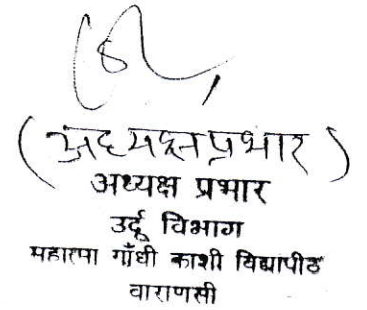 (अध्यक्ष प्रभार)
अध्यक्ष प्रभार
उर्दू विभाग
महात्मा गाँधी काशी विद्यापीठ
वाराणसी